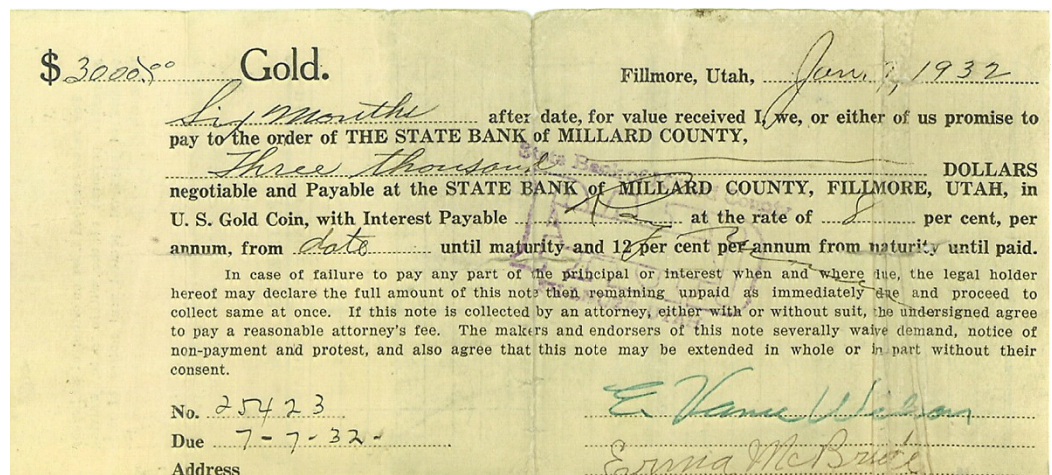 $ 3000.00 Gold. Fillmore, Utah, Jan. 7, 1932
Six Months after date, for value received I, we, or either of us promise to
pay to the order of THE STATE BANK of MILLARD COUNTY,
Three thousand DOLLARS
negotiable and Payable at the STATE BANK of MILLARD COUNTY, FILLMORE, UTAH, in
U. S. Gold Coin, with Interest Payable at the rate of 8 per cent, per
annum, from date until maturity and 12 per cent per annum from naturity until paid.
In case of failure to pay any part of the principal or interest when and where due, the legal holder
hereof may declare the full amount of this note then remaining unpaid as immediately due and proceed to
collect same at once. If this note is collected by an attorney, either with or without suit, the undersigned agree
to pay a reasonable attorney's fee. The makers and endorsers of this note severally waive demand, notice of
non-payment and protest, and also agree that this note may be extended in whole or in part without their
consent.
No. 25423
E. Vance Wilson
Due 7-7-32-
Erma McBride
Address
State Bank of Millard County
PAID